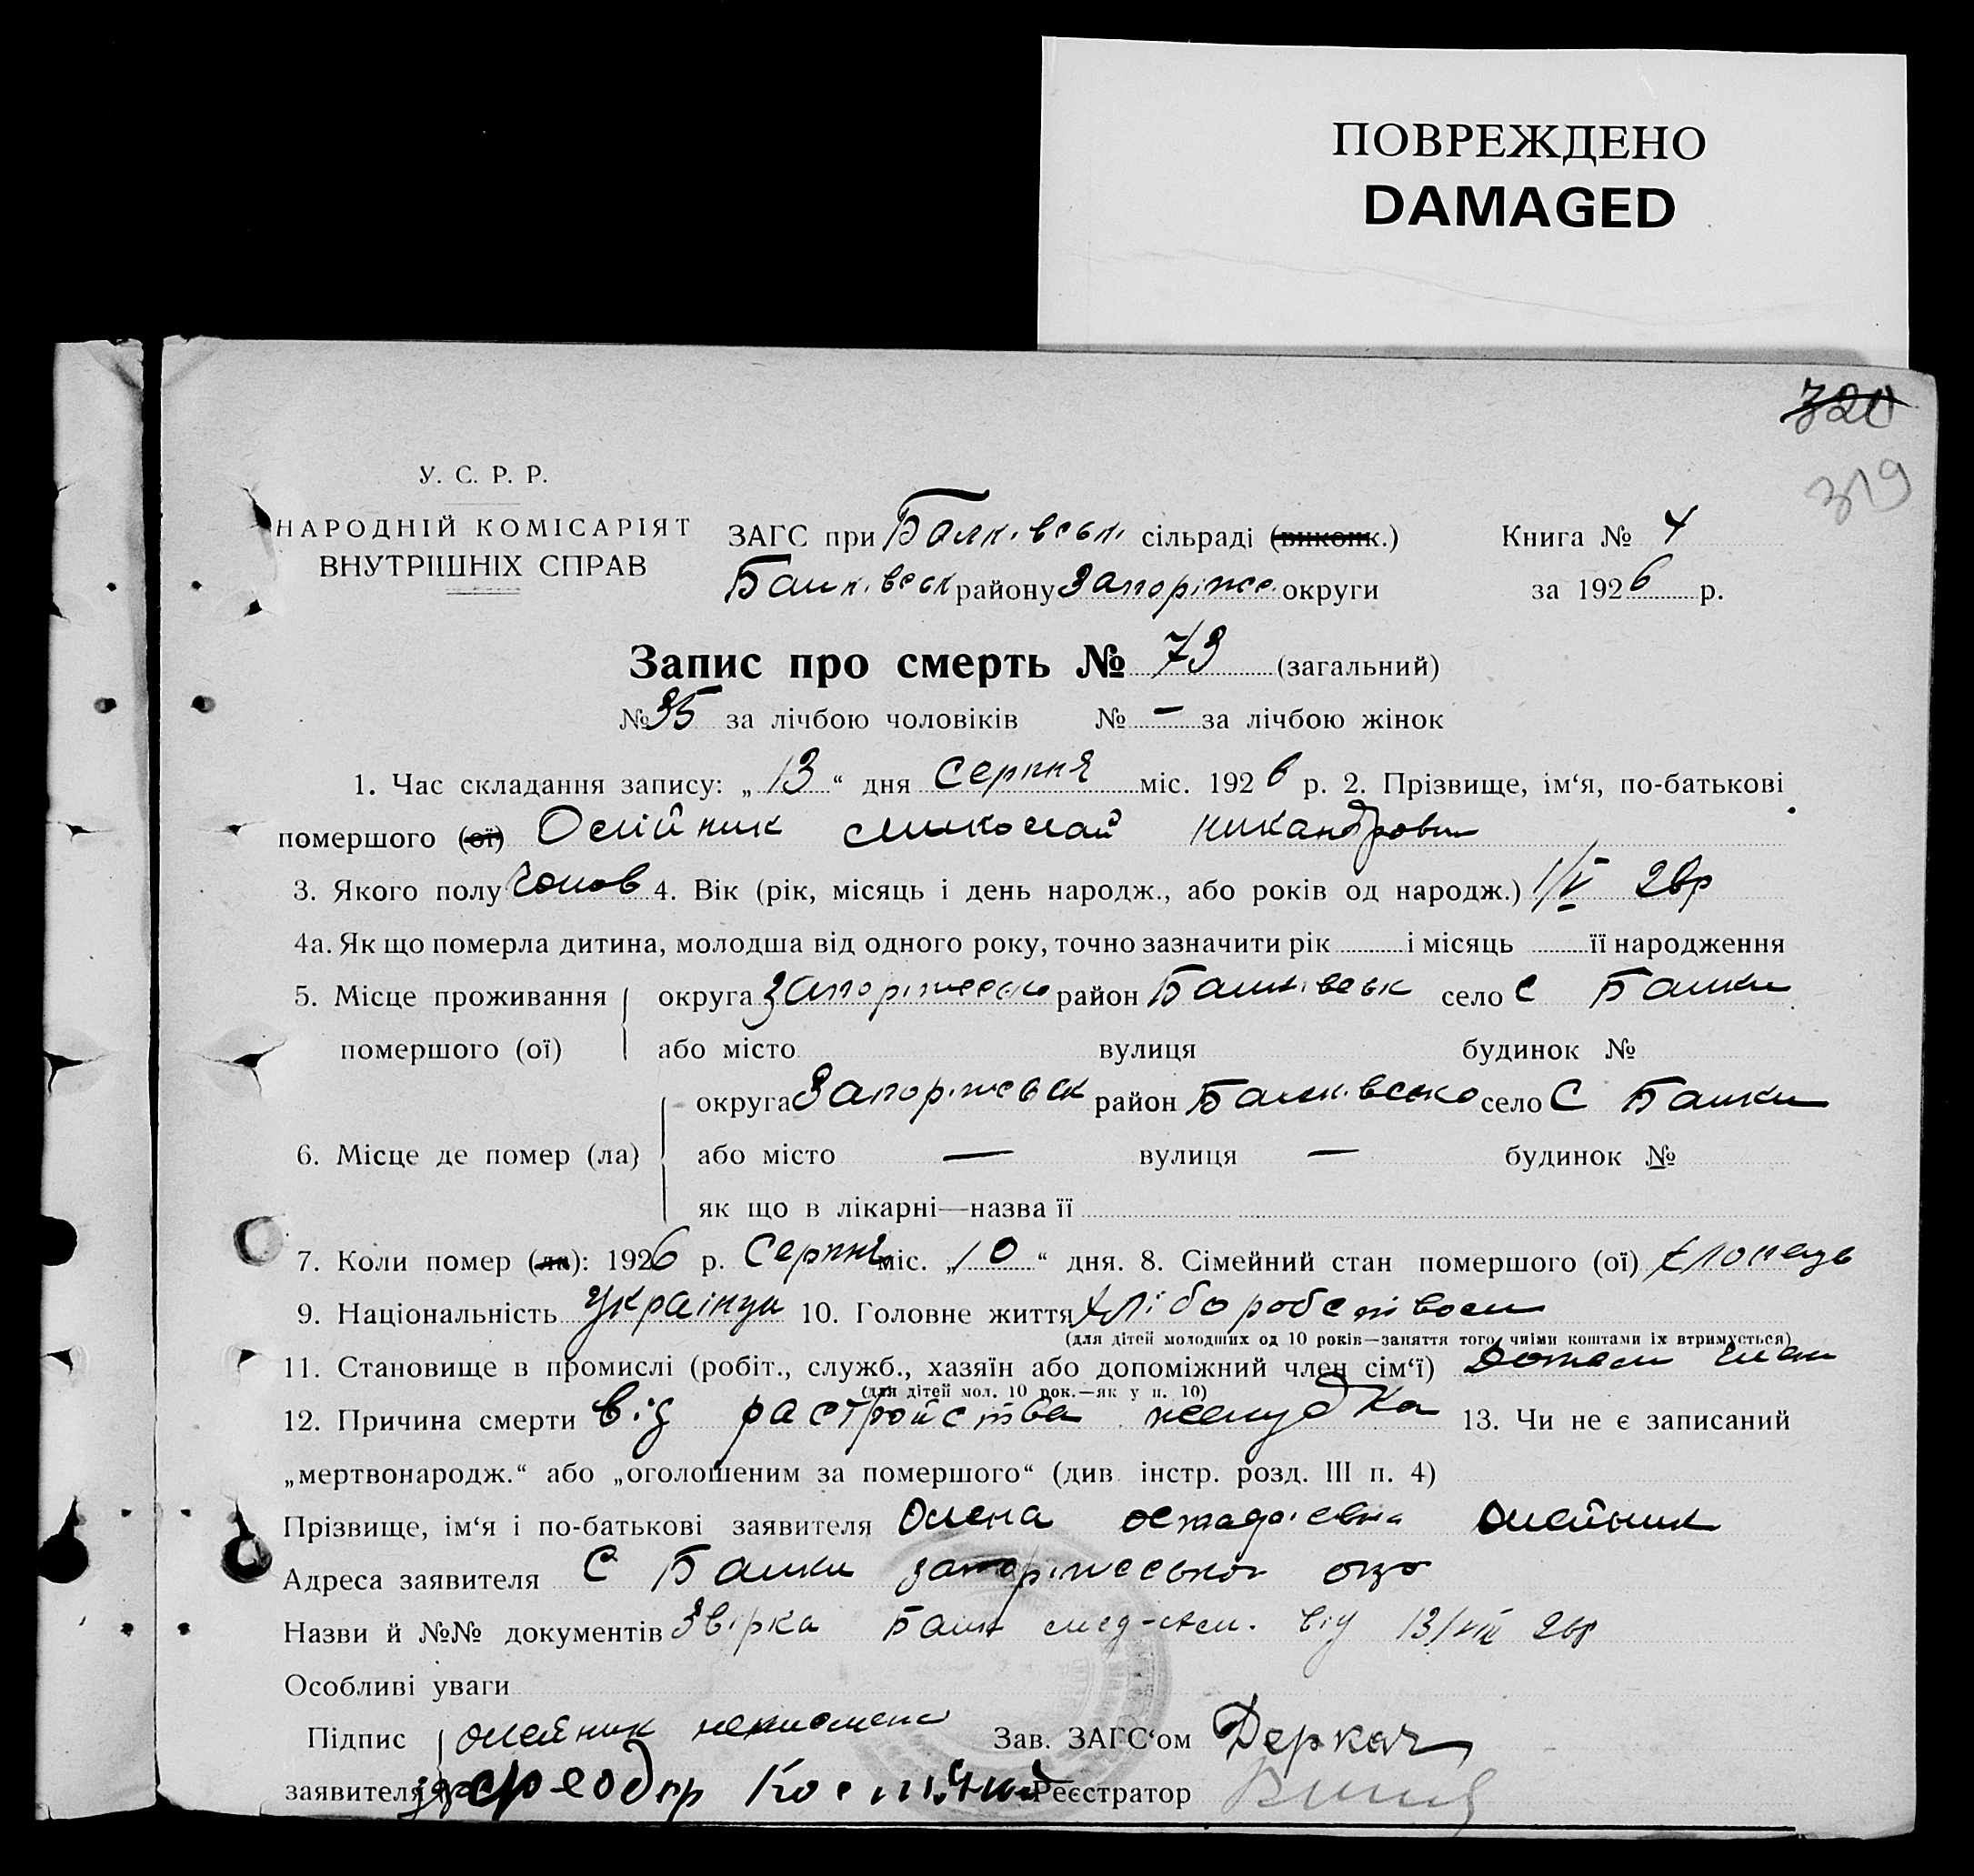 ПОВРЕЖДЕНО
DAMAGED
320
319
У. С. Р. Р.
НАРОДНІЙ КОМІСАРІЯТ
ВНУТРІШНІХ СПРАВ
ЗАГС при Балківськ. сільраді (виконк.) Книга № 4
Балківськ району Запоріжс. округи за 1926 р.
Запис про смерть № 73 (загальний)
№ 35 за лічбою чоловіків № — за лічбою жінок
1. Час складання запису: „13“ дня Серпня міс. 1926 р. 2. Прізвище, ім‘я, по-батькові
помершого (ої) Олійник Миколай Никандрович
3. Якого полу Чолов 4. Вік (рік, місяць і день народж., або років од народж.) 1/V 26р
4а. Як що померла дитина, молодша від одного року, точно зазначити рік і місяць її народження
5. Місце проживання округа Запоріжсько район Балківськ село С Балки
помершого (ої) або місто вулиця будинок №
округа Запоріжськ район Балківсько село С Балки
6. Місце де помер (ла) або місто — вулиця — будинок №
як що в лікарні—назва її
7. Коли помер (ла): 1926 р. Серпня міс. „10“ дня. 8. Сімейний стан помершого (ої) хлопець
9. Національність Українци 10. Головне життя хліборобством
(для дітей молодших од 10 років—заняття того, чиїми коштами їх втримується)
11. Становище в промислі (робіт., служб., хазяїн або допоміжний член сім‘ї) член
(для дітей мол. 10 рок.—як у п. 10)
12. Причина смерти від растройства желудка 13. Чи не є записаний
„мертвонародж.“ або „оголошеним за помершого“ (див. інстр. розд. III п. 4)
Прізвище, ім‘я і по-батькові заявителя Олена Олейник
Адреса заявителя С Балки Запоріжської
Назви й №№ документів Звірка Балк мед-  від 13/VIII 26р
Особливі уваги
Підпис Олейник неписмена Зав. ЗАГС‘ом Деркач
заявителя Феодор Реєстратор